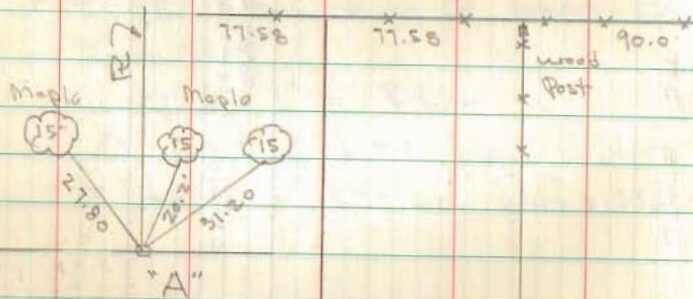 77.58
77.58
90.0
wood
Post
Maple
Maple
15"
15
15
27.80
31.20
"A"